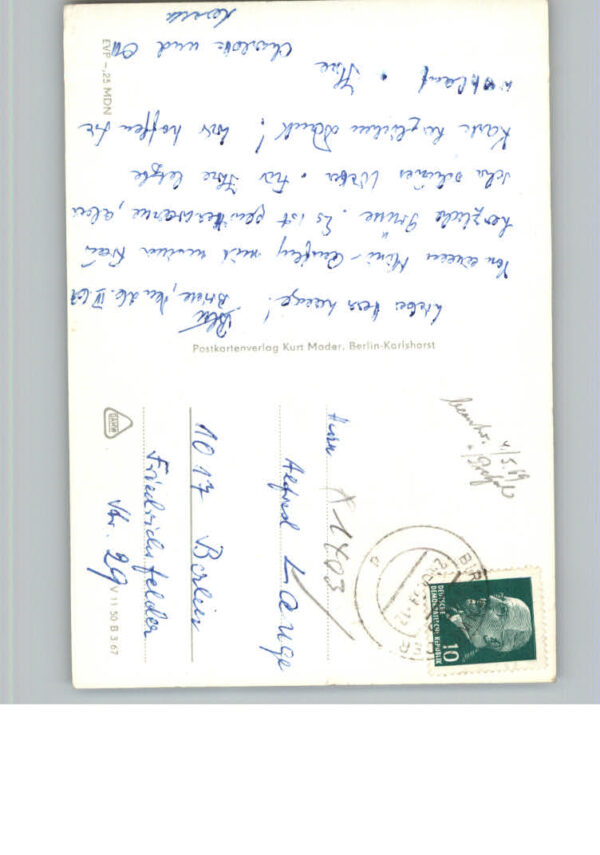 Brüne, den 26. IV 69
Lieber Herr Lange!
Von einem Mini-Ausflug mit meiner Frau
herzliche Grüsse. Es ist
sehr schönes Wetter. Für Ihre letzte
Karte herzlichen Dank! Wir hoffen Sie
wohlauf. Ihre
Charlotte und Otto
EVP -,25 MDN
Postkartenverlag Kurt Mader, Berlin-Karlshorst
V 11 50 B 3.67
Herrn X 1403
Alfred Lange
1017 Berlin
Friedrichsfelder
Str. 29
DEUTSCHE
DEMOKRATISCHE REPUBLIK
10